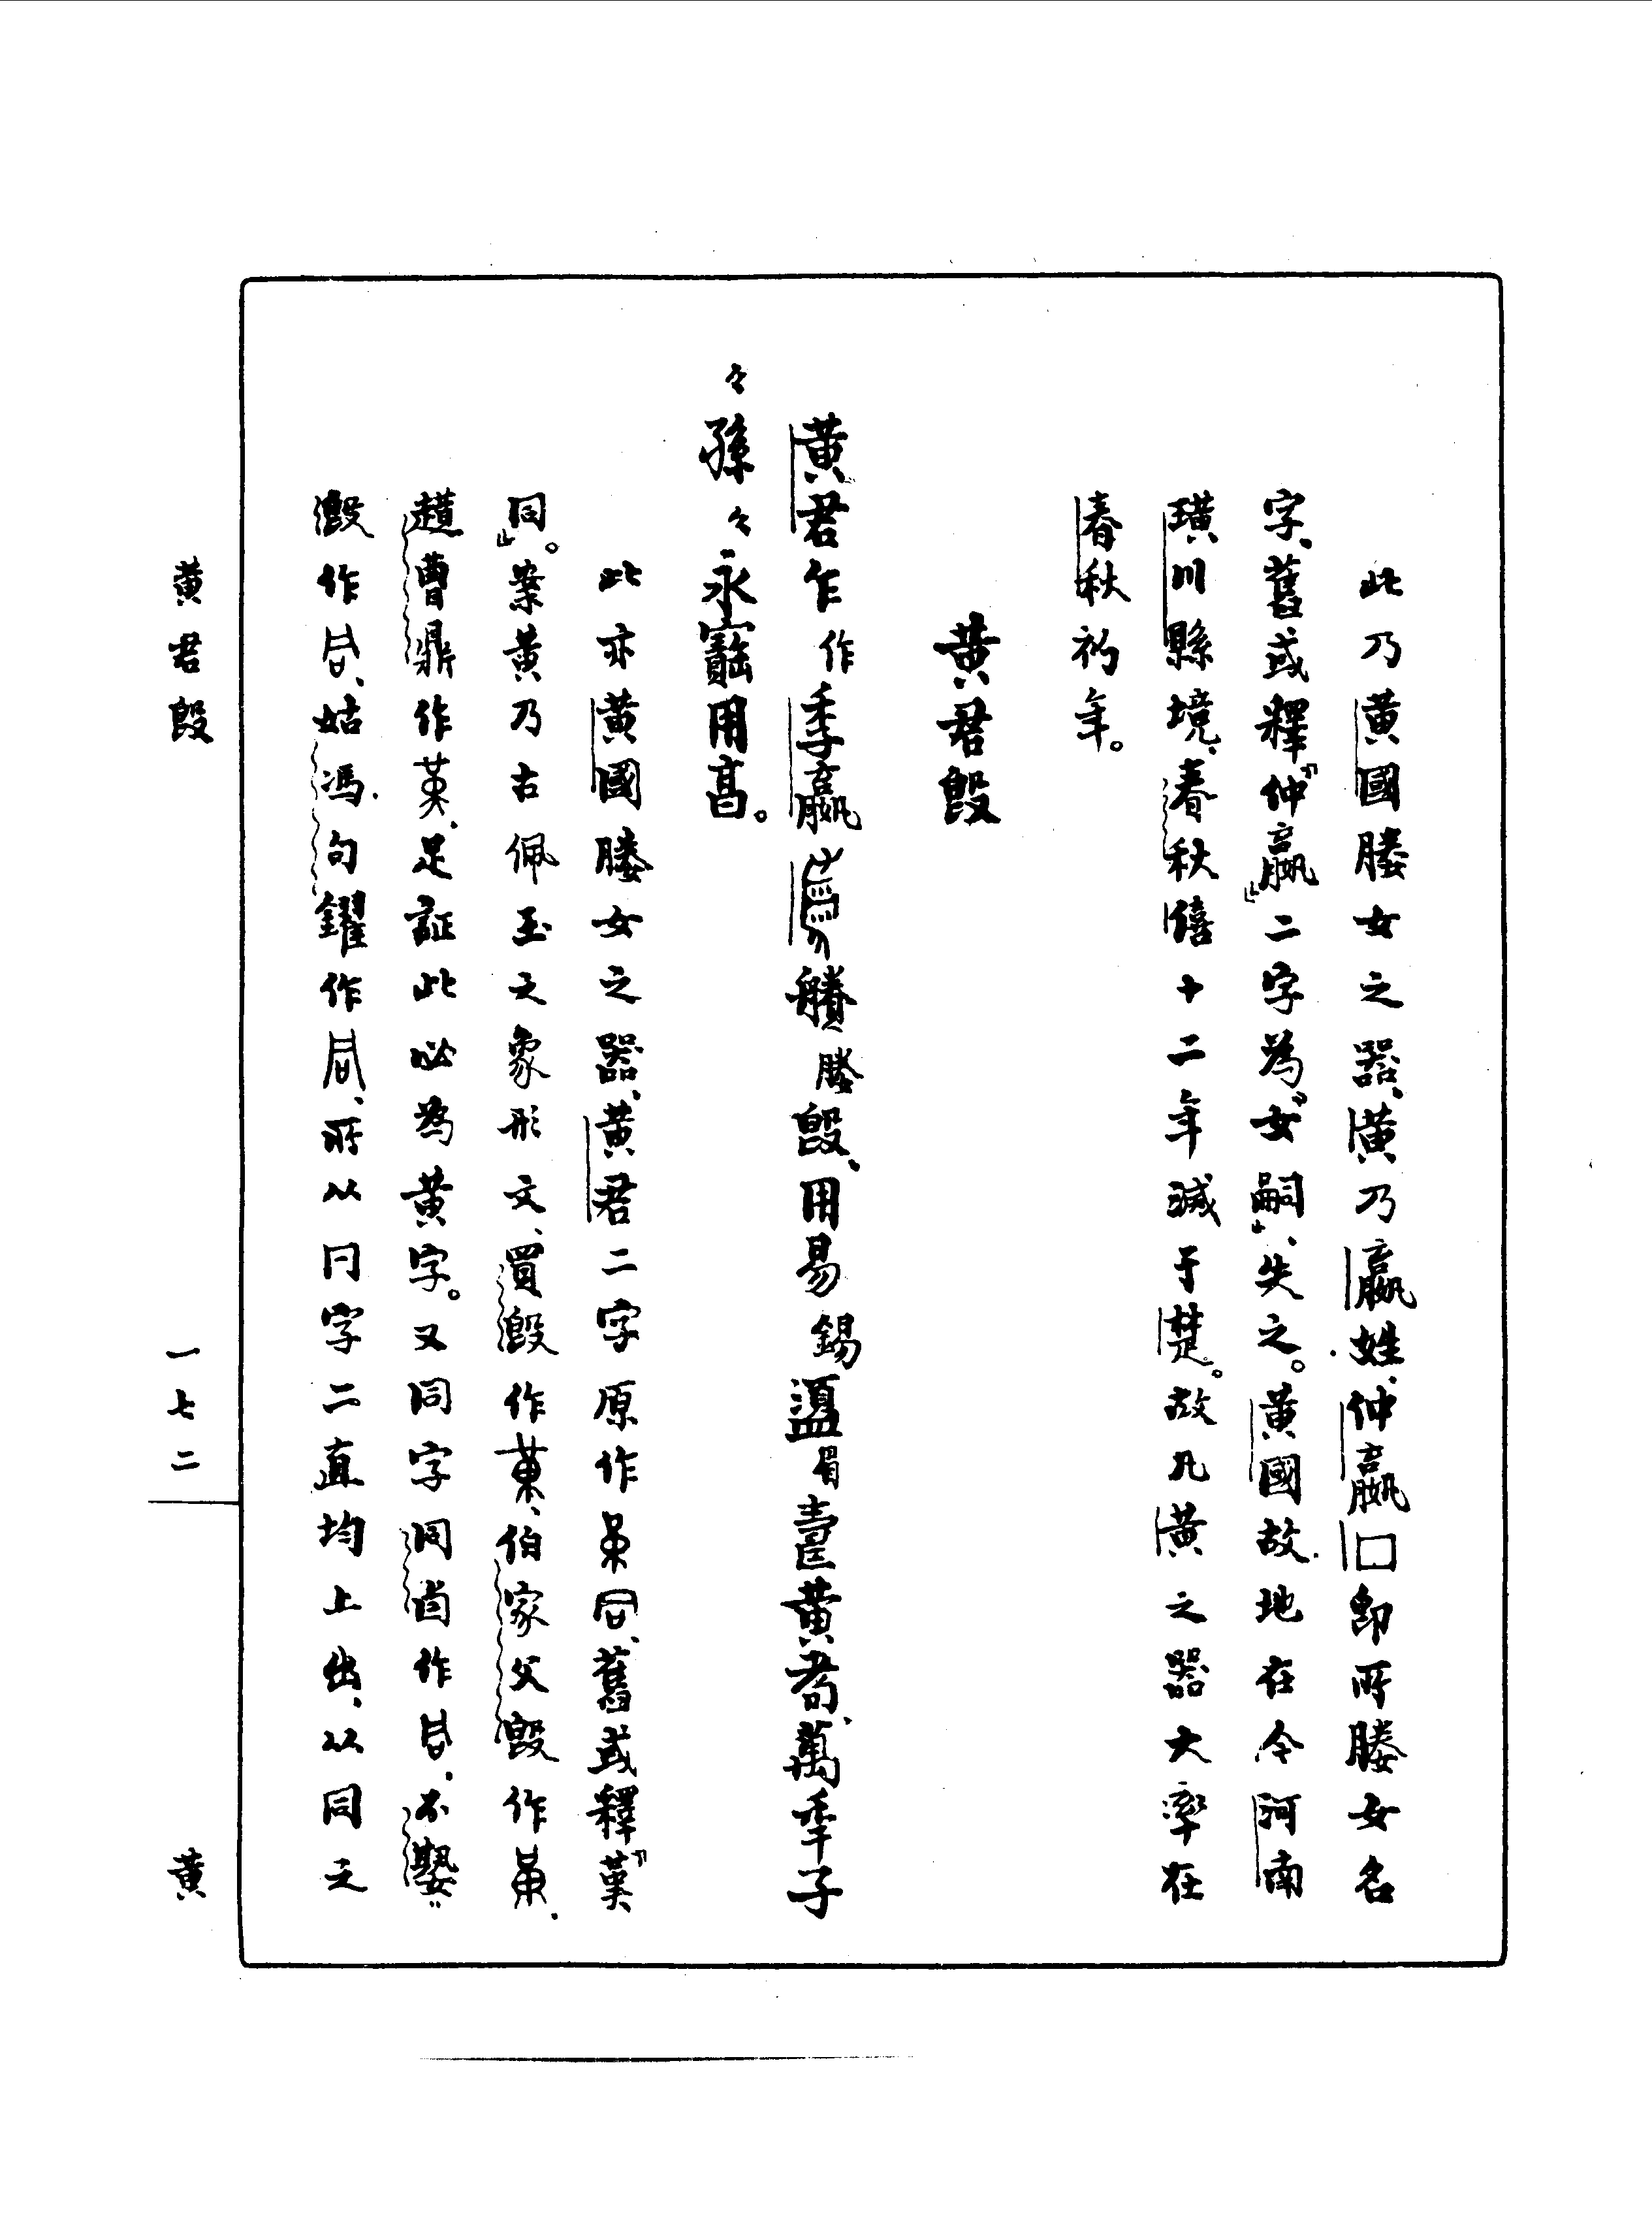 此乃黄國媵女之器、黄乃嬴姓、仲嬴囗即所媵女名
字、舊或釋『仲嬴』二字為『女嗣』、失之。黄國故地在今河南
璜川縣境、春秋僖十二年滅于楚。故凡黄之器大率在
春秋初年。
黄君𣪘
黄君乍作季嬴賸媵𣪘、用易錫眉壽黄耇、萬年子
々孫々永寶用亯。
此亦黄國媵女之器、黄君二字原作、舊或釋『萬
同』。案黄乃古佩玉之象形文、買𣪘作、伯家父𣪘作、
趞曹鼎作、足証此必為黄字。又同字同卣作、不𡢁
𣪘作、姑馮句鑃作、所以冃字二直均上出、以同之
黄君𣪘
一七二
黄